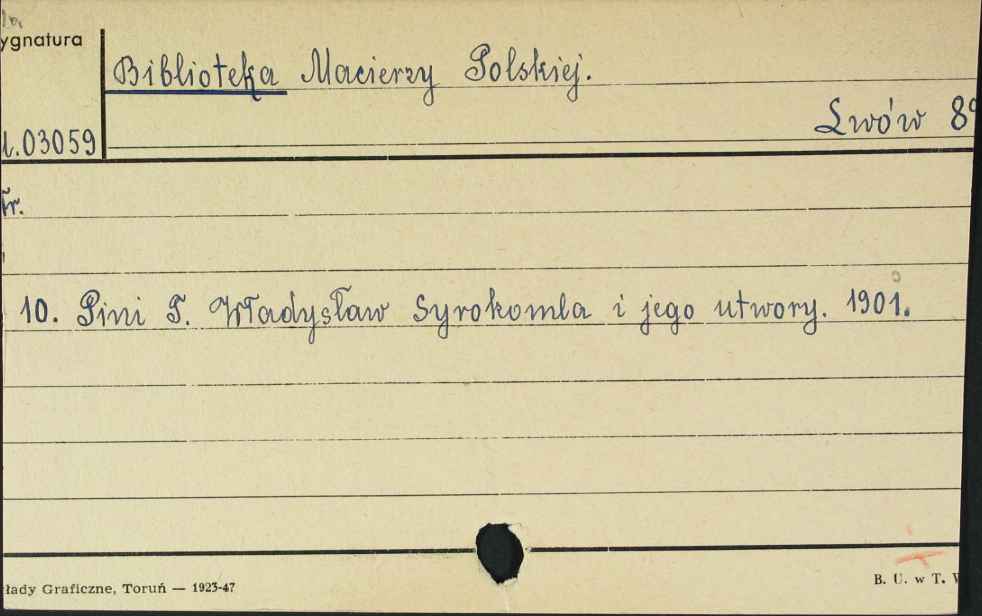 ygnatura
Biblioteka Macierzy Polskiej.
Lwów 8°
.03059
Tr.
10. Pini T. Władysław Syrokomla i jego utwory. 1901.
łady Graficzne, Toruń — 1923-47
B. U. w T.